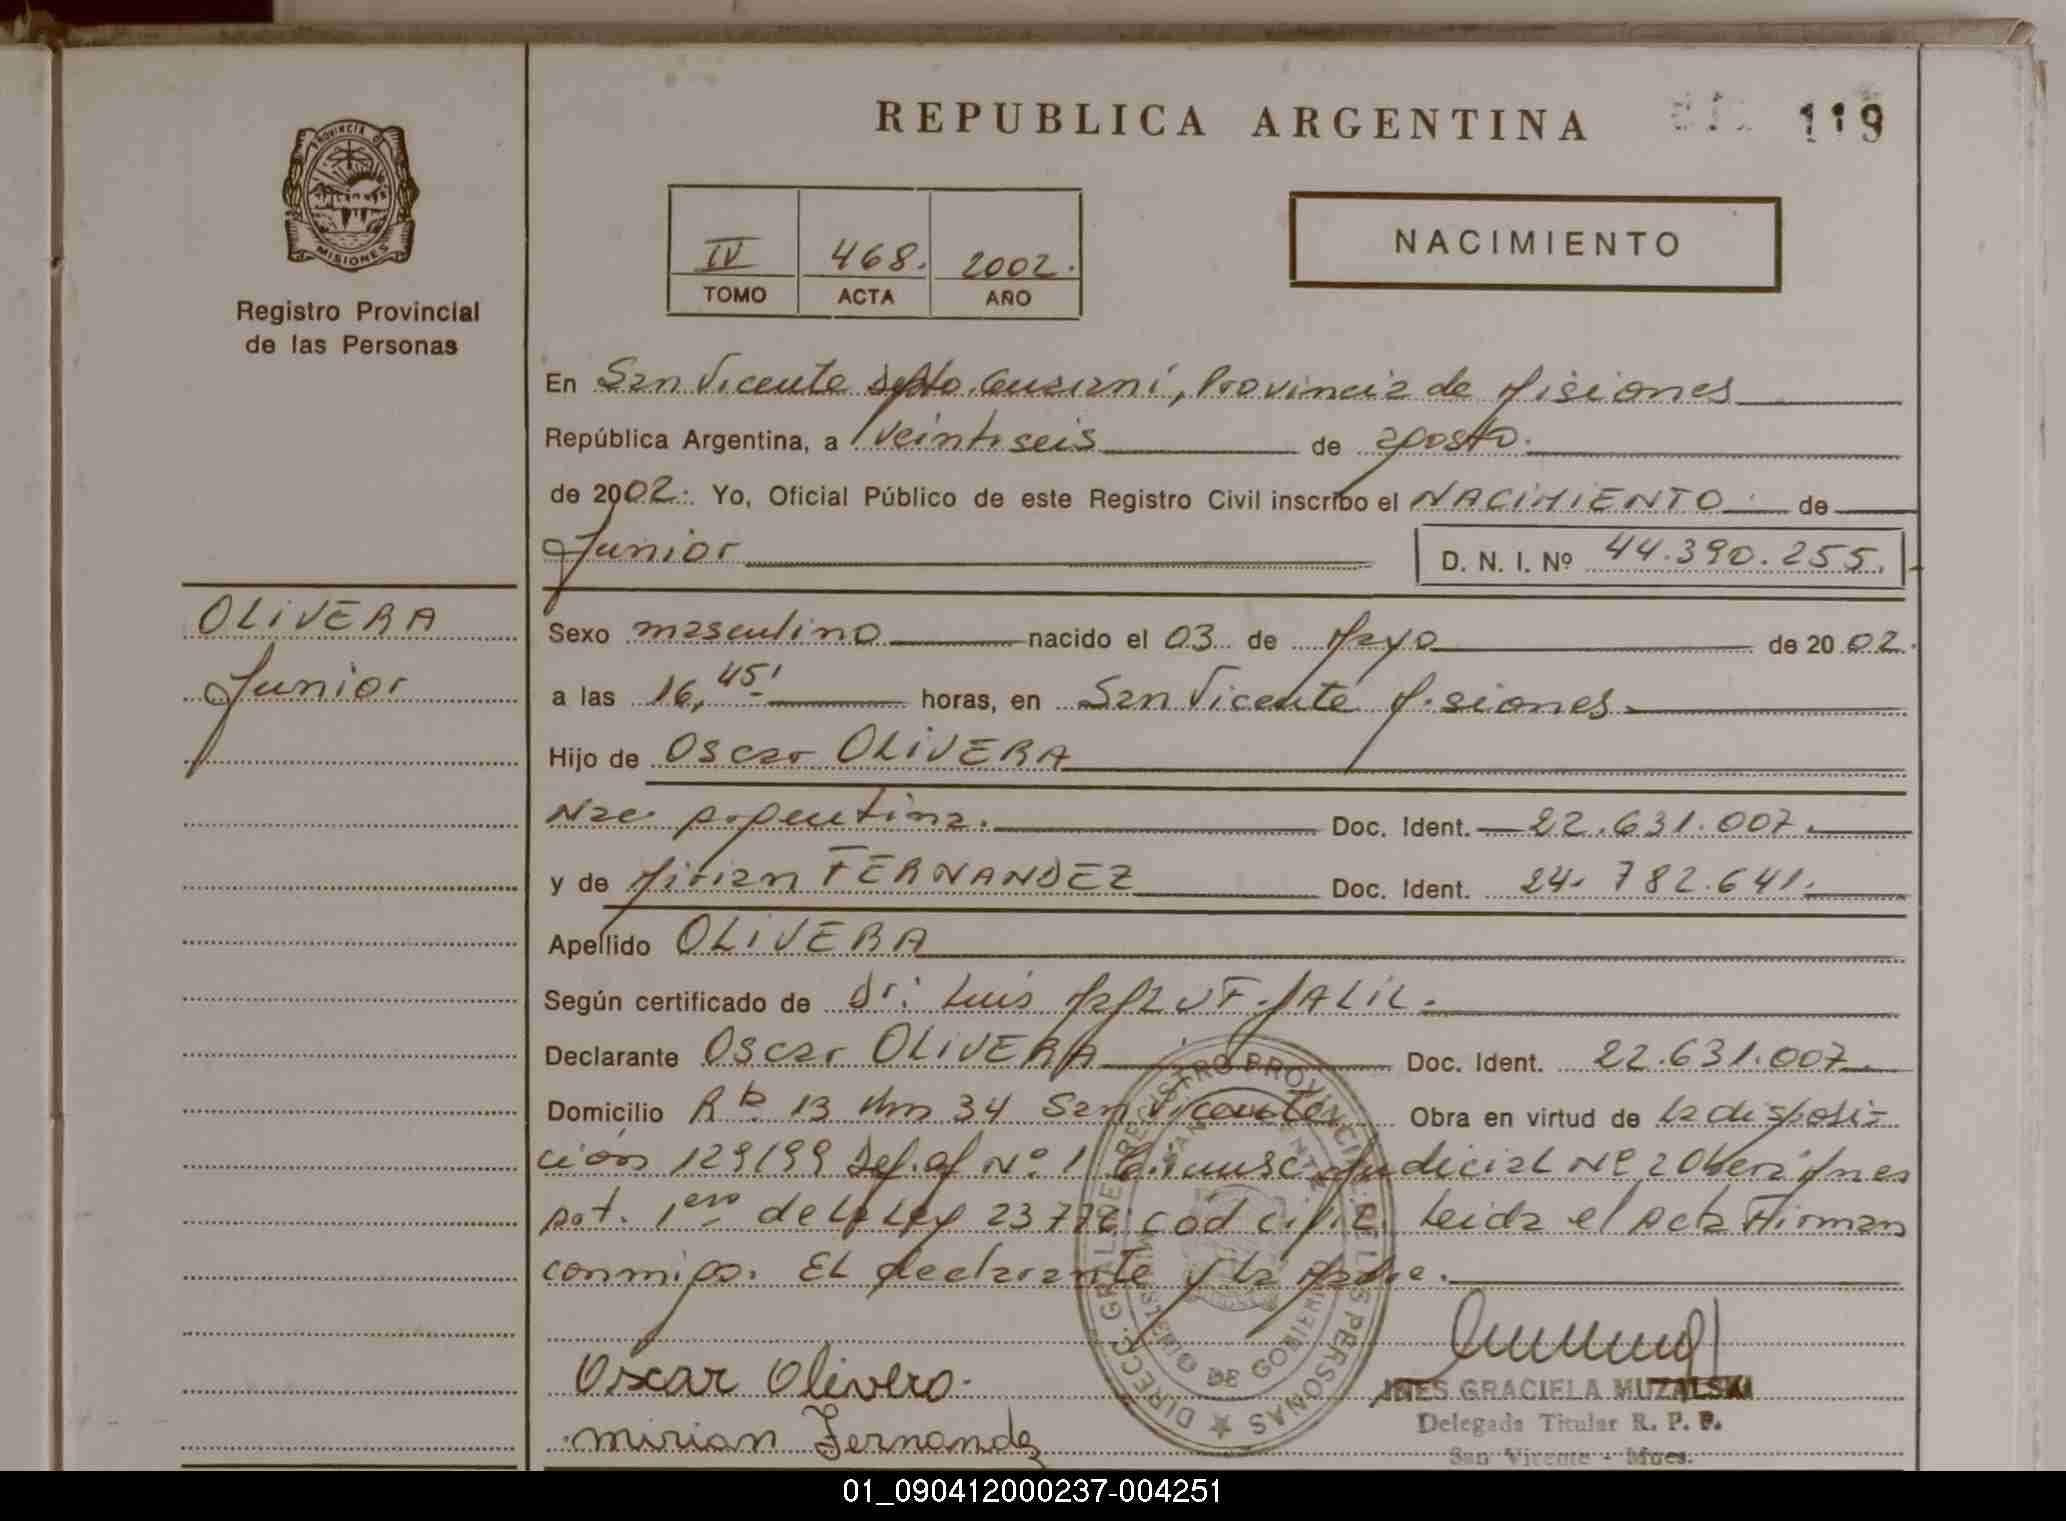 REPUBLICA ARGENTINA
119
PROVINCIA DE
MISIONES
Registro Provincial
de las Personas
IV 468. 2002.
TOMO ACTA AÑO
NACIMIENTO
En San Vicente Depto. Guaraní, Provincia de Misiones
República Argentina, a veintiseis de agosto.
de 2002. Yo, Oficial Público de este Registro Civil inscribo el NACIMIENTO de
Junior D. N. I. Nº 44.390.255.
OLIVERA
Junior
Sexo masculino nacido el 03 de Mayo de 2002.
a las 16,45' horas, en San Vicente Misiones
Hijo de Oscar OLIVERA
Nac. Argentina. Doc. Ident. 22.631.007.
y de Mirian FERNANDEZ Doc. Ident. 24.782.641.
Apellido OLIVERA
Según certificado de Dr. Luis JALIL.
Declarante Oscar OLIVERA Doc. Ident. 22.631.007
Domicilio Rta. 13 Km 34 San Vicente Obra en virtud de la disposi-
ción 129/99 Def. of Nº 1 Circunsc. Judicial Nº 2 Obera Mnes
Art. 1ero de la Ley 23776 cod civil. Leida el Acta Firman
conmigo. El declarante y la Madre.
Oscar Olivero.
Mirian Fernandez
DIRECC. GRAL. DE REGISTRO PROVINCIAL DE LAS PERSONAS
SAN VICENTE
MINISTERIO DE GOBIERNO
INES GRACIELA MUZALSKI
Delegada Titular R. P. P.
San Vicente - Mnes.
01_090412000237-004251